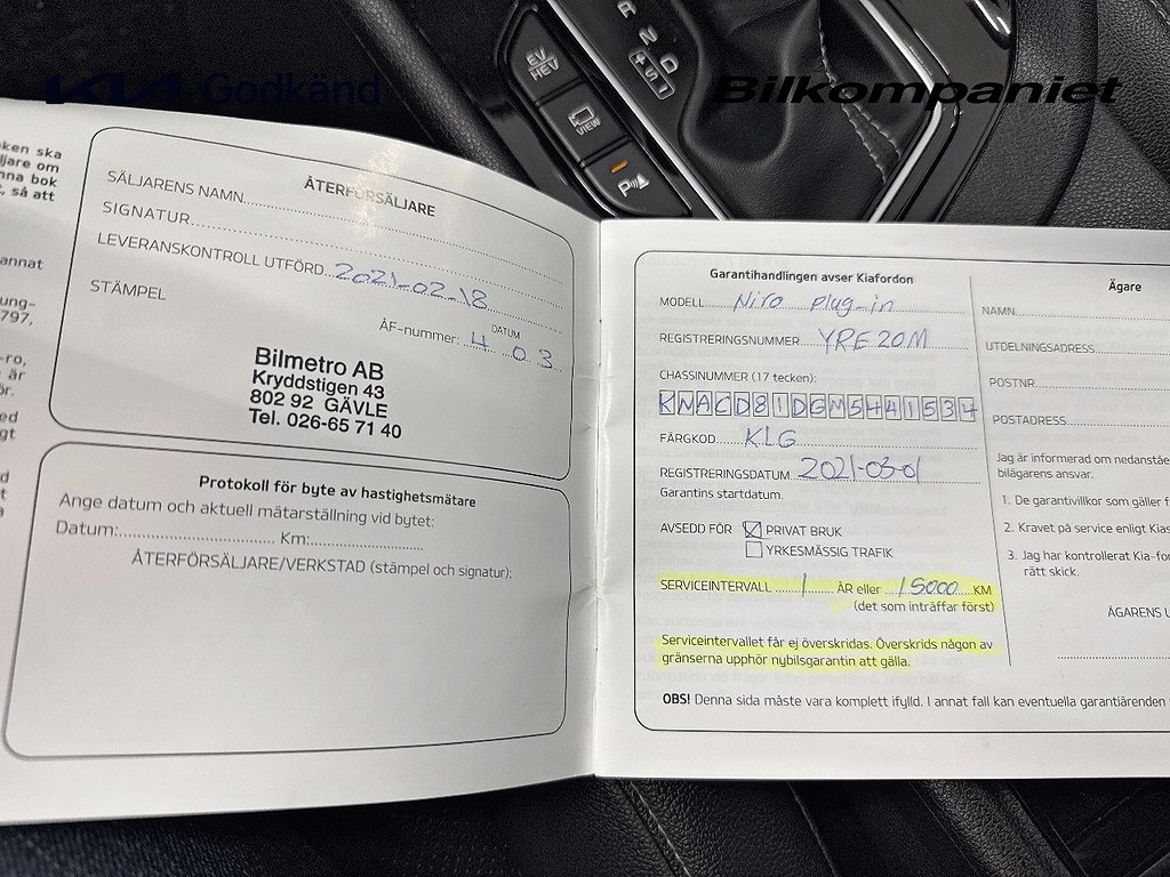 KIA Godkänd
Bilkompaniet
R
N
D
EV
HEV
VIEW
P
ken ska
ljare om
nna bok
, så att
annat
ung-
797,
-ro,
är
ör.
ed
gt
d
t
a
ÅTERFÖRSÄLJARE
SÄLJARENS NAMN
SIGNATUR
LEVERANSKONTROLL UTFÖRD 2021-02-18
DATUM
STÄMPEL
ÅF-nummer: 4 0 3
Bilmetro AB
Kryddstigen 43
802 92 GÄVLE
Tel. 026-65 71 40
Protokoll för byte av hastighetsmätare
Ange datum och aktuell mätarställning vid bytet:
Datum: Km:
ÅTERFÖRSÄLJARE/VERKSTAD (stämpel och signatur):
Garantihandlingen avser Kiafordon
MODELL Niro plug-in
REGISTRERINGSNUMMER YRE20M
CHASSINUMMER (17 tecken):
KNACD81DGM5441534
FÄRGKOD KLG
REGISTRERINGSDATUM 2021-03-01
Garantins startdatum.
AVSEDD FÖR PRIVAT BRUK
YRKESMÄSSIG TRAFIK
SERVICEINTERVALL 1 ÅR eller 15000 KM
(det som inträffar först)
Serviceintervallet får ej överskridas. Överskrids någon av
gränserna upphör nybilsgarantin att gälla.
OBS! Denna sida måste vara komplett ifylld. I annat fall kan eventuella garantiärenden
Ägare
NAMN
UTDELNINGSADRESS
POSTNR
POSTADRESS
Jag är informerad om nedanståe
bilägarens ansvar.
1. De garantivillkor som gäller f
2. Kravet på service enligt Kias
3. Jag har kontrollerat Kia-for
rätt skick.
ÄGARENS U